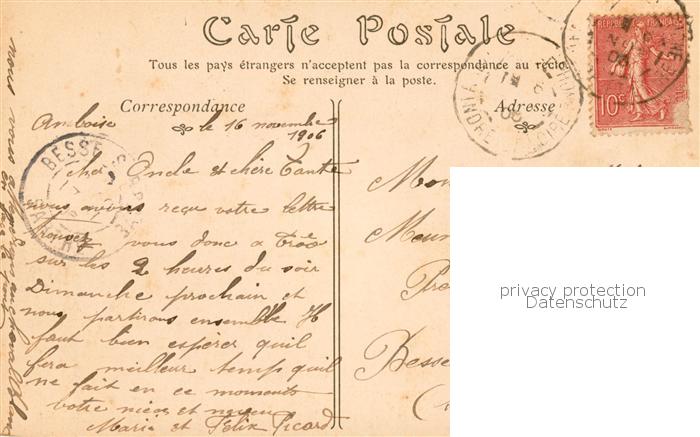 Carte Postale
Tous les pays étrangers n'acceptent pas la correspondance au recto
Se renseigner à la poste.
Correspondance
Adresse
REPUBLIQUE FRANÇAISE
10c
Amboise le 16 novembre
1906
cher Oncle et chère Tante
nous avons reçu votre lettre
trouvez vous donc a
sur les 2 heures du soir
Dimanche prochain et
nous partirons ensemble Il
faut bien espérer quil
fera meilleur temps quil
ne fait en ce moment
votre nièce et neveu
Maria et Félix Picard
nous vous
BESSE
INDRE
Mon
Meun
Pro
Besse
privacy protection
Datenschutz